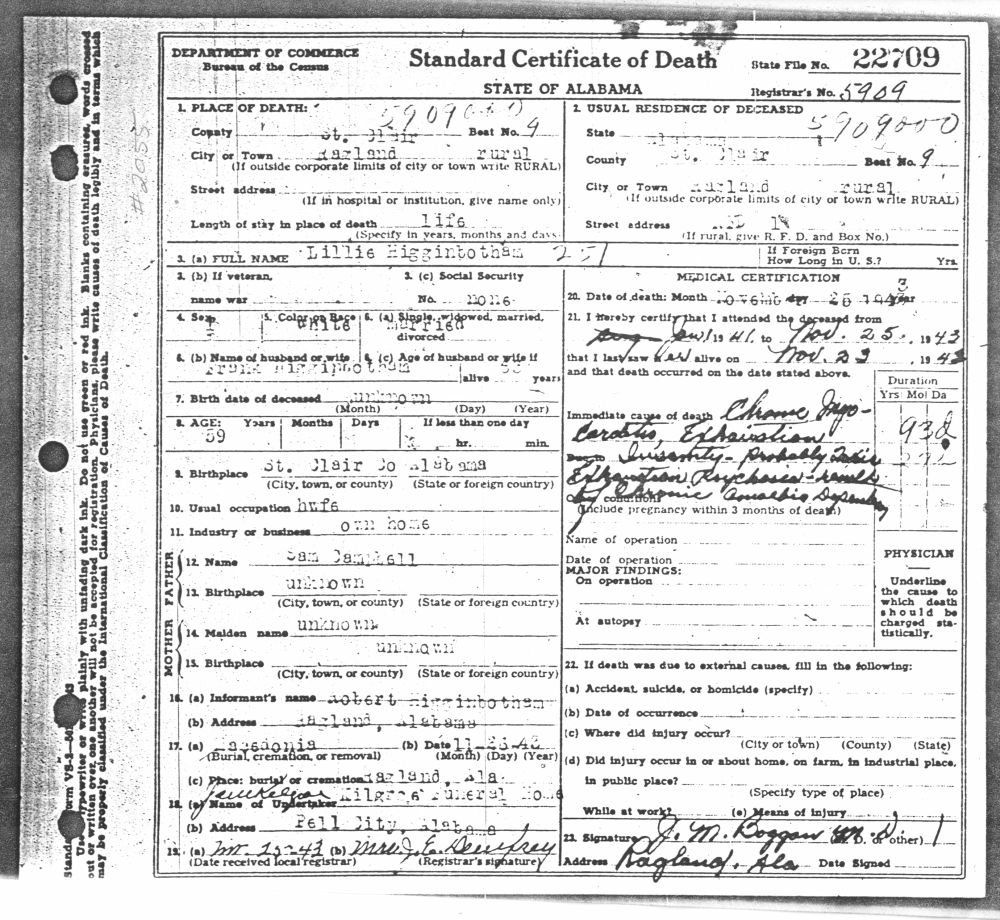 DEPARTMENT OF COMMERCE
Bureau of the Census
Standard Certificate of Death
STATE OF ALABAMA
State File No. 22709
Registrar's No. 5909
1. PLACE OF DEATH:
5909000
County St. Clair Beat No. 9
City or Town Ragland rural
(If outside corporate limits of city or town write RURAL)
Street address
(If in hospital or institution, give name only)
Length of stay in place of death life
(Specify in years, months and days
2. USUAL RESIDENCE OF DECEASED
5909000
State Alabama
County St. Clair Beat No. 9
City or Town Ragland rural
(If outside corporate limits of city or town write RURAL)
Street address
(If rural, give R. F. D. and Box No.)
3. (a) FULL NAME Lillie Higginbotham 251
If Foreign Born
How Long in U. S.? Yrs.
3. (b) If veteran,
name war
3. (c) Social Security
No. none
4. Sex F
5. Color or Race White
6. (a) Single, widowed, married,
divorced Married
6. (b) Name of husband or wife
Frank Higginbotham
6. (c) Age of husband or wife if
alive years
7. Birth date of deceased unknown
(Month) (Day) (Year)
8. AGE: Years Months Days If less than one day
59 hr. min.
9. Birthplace St. Clair Co Alabama
(City, town, or county) (State or foreign country)
10. Usual occupation hwfe
11. Industry or business own home
FATHER
12. Name Sam Campbell
13. Birthplace unknown
(City, town, or county) (State or foreign country)
MOTHER
14. Maiden name unknown
15. Birthplace unknown
(City, town, or county) (State or foreign country)
16. (a) Informant's name Robert Higginbotham
(b) Address Ragland, Alabama
17. (a) Macedonia (b) Date 11-26-43
(Burial, cremation, or removal) (Month) (Day) (Year)
(c) Place: burial or cremation Ragland, Ala.
18. (a) Name of Undertaker Kilgroe Funeral Home
(b) Address Pell City, Alabama
19. (a) 25-43 (b) Mrs. J. E. Dempsey
(Date received local registrar) (Registrar's signature)
MEDICAL CERTIFICATION
20. Date of death: Month November 25 1943
21. I hereby certify that I attended the deceased from
Jan 1 1941, to Nov. 25, 1943
that I last saw her alive on Nov. 23, 1943
and that death occurred on the date stated above.
Duration
Yrs Mo Da
Immediate cause of death Chronic Myo-
Carditis, Exhaustion
Due to Insanity - probably Toxic
Exhaustion Psychosis - result
by Chronic Amoebic Dysentery
(Include pregnancy within 3 months of death)
Name of operation
Date of operation
MAJOR FINDINGS:
On operation
At autopsy
PHYSICIAN
Underline
the cause to
which death
should be
charged sta-
tistically.
22. If death was due to external causes, fill in the following:
(a) Accident, suicide, or homicide (specify)
(b) Date of occurrence
(c) Where did injury occur?
(City or town) (County) (State)
(d) Did injury occur in or about home, on farm, in industrial place,
in public place?
(Specify type of place)
While at work? (e) Means of injury
23. Signature J. M. Boggan M. D. (M. D. or other)
Address Ragland, Ala Date Signed
#2055
Use typewriter or write plainly with unfading dark ink. Do not use green or red ink. Blanks containing erasures, words crossed
out or written over one another will not be accepted for registration. Physicians, please write causes of death legibly and in terms which
may be properly classified under the International Classification of Causes of Death.